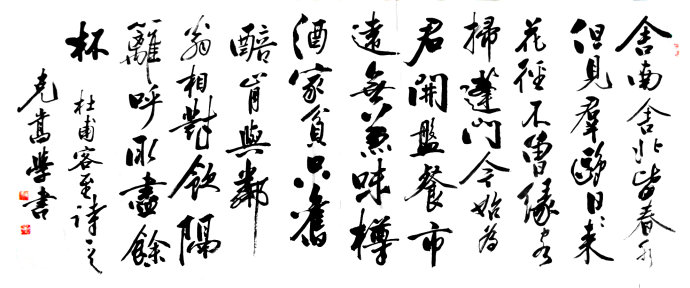 舍南舍北皆春水
但見羣鷗日日来
花徑不曾缘客
掃蓬門今始為
君開盤餐市
遠無兼味樽
酒家貧只舊
醅肯與鄰
翁相對飲隔
籬呼取盡餘
杯
杜甫客至詩一首
克嵩學書